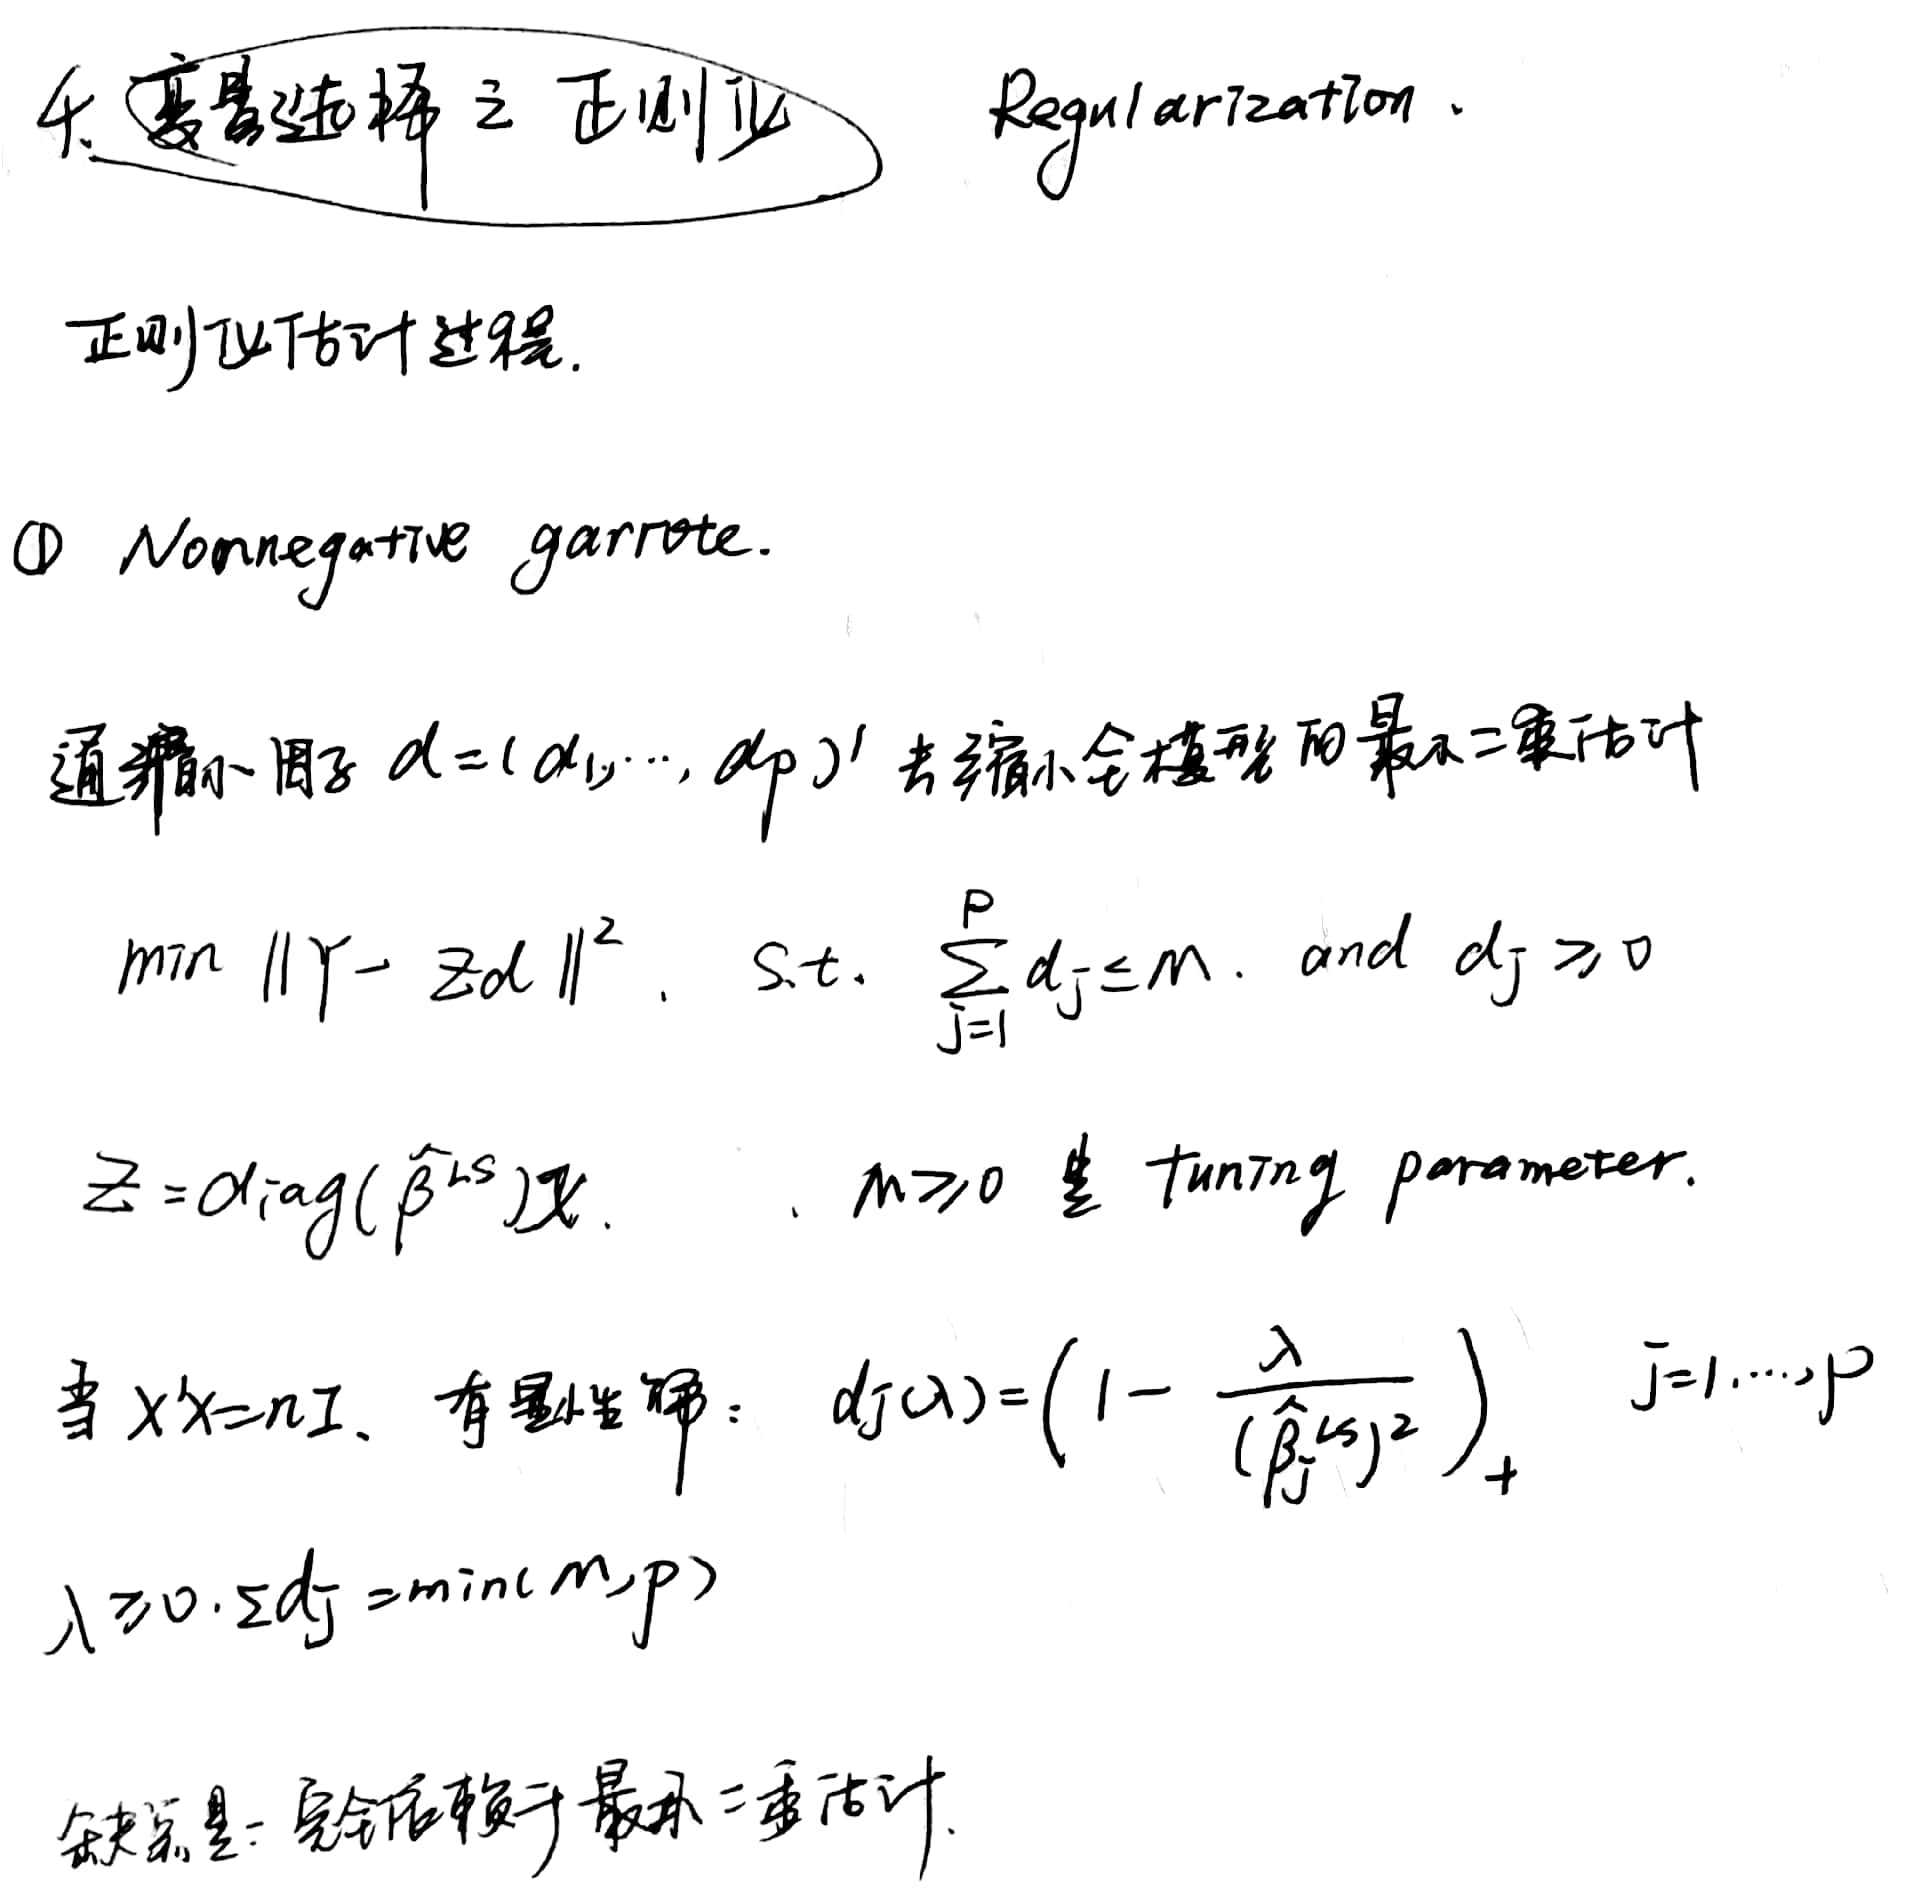 4. 变量选择之正则化 Regularization.
正则化估计过程.
① Nonnegative garrote.
通过缩小因子 d=(d₁,…, dp)' 去缩小全模型的最小二乘估计
min ||Y - Zd||². s.t. \sum_{j=1}^{p} dj ≤ M. and dj ≥ 0
Z = diag(β̂^{LS})X. . M ≥ 0 是 tuning parameter.
当 X'X=nI、有显性解: dj(λ) = (1 - \frac{λ}{(β̂_j^{LS})²})_+ j=1.…,p
λ ≥ 0. Σdj = min(M,p)
缺点是: 完全依赖于最小二乘估计.